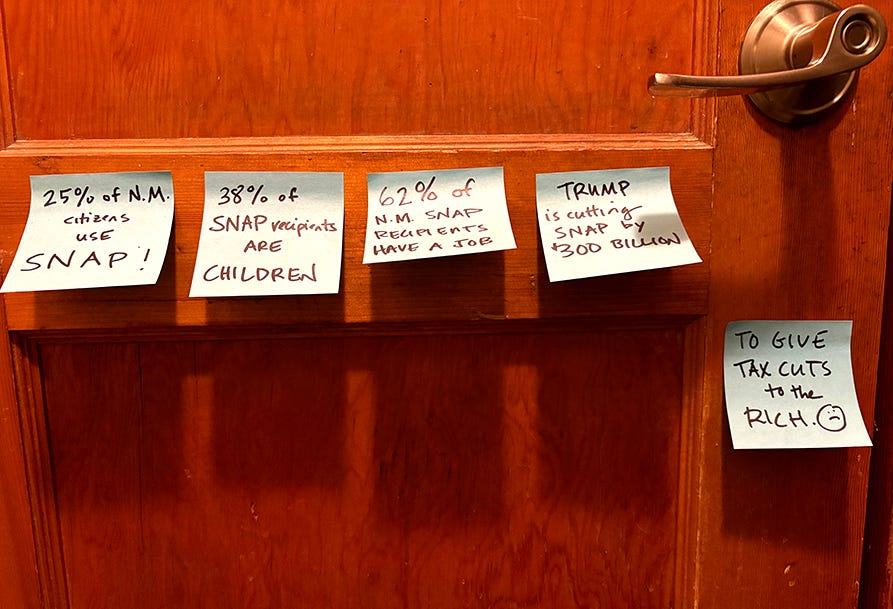 25% of N.M.
citizens
USE
SNAP!
38% of
SNAP recipients
ARE
CHILDREN
62% of
N.M. SNAP
RECIPIENTS
HAVE A JOB
TRUMP
is cutting
SNAP by
$300 BILLION
TO GIVE
TAX CUTS
to the
RICH.